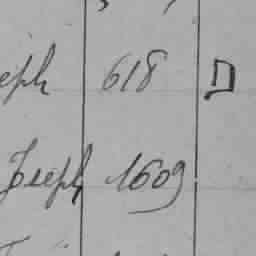 eph 618 D
Joseph 1609